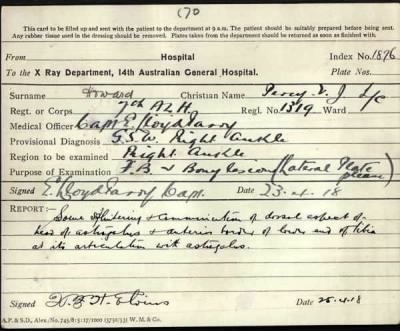 170
This card to be filled up and sent with the patient to the department at 9 a.m. The patient should be suitably prepared before being sent.
Any rubber tissue used in the dressing should be removed. Plates taken from the department should be returned as soon as finished with.
From Hospital Index No. 1896
To the X Ray Department, 14th Australian General Hospital. Plate Nos.
Surname Howard Christian Name Percy V. J L/c
Regt. or Corps 7th A.L.H. Regl. No. 1319 Ward
Medical Officer Capt E. Lloyd Parry
Provisional Diagnosis G.S.W. Right Ankle
Region to be examined Right Ankle
Purpose of Examination F.B. & Bony Lesion (Lateral Plate please)
Signed E Lloyd Parry Capt. 23-4-18
REPORT:—
Some splintering & comminution of dorsal aspect of
head of astragalus & anterior border of lower end of tibia
at its articulation with astragalus.
Signed 25.4.18
A.P. & S.D., Alex./No. 745/8:5:17/1000 (3732/53) W. M. & Co.